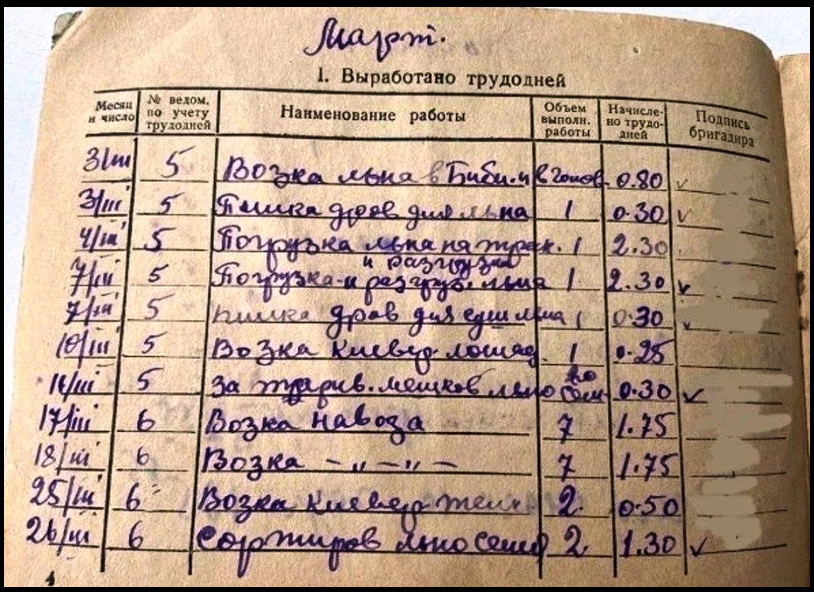 Март.
1. Выработано трудодней
Месяц и число № ведом. по учету трудодней Наименование работы Объем выполн. работы Начисле-но трудо-дней Подпись бригадира
3/III 5 Возка льна в 0.80
3/III 5 Пилка дров для льна 1 0.30
4/III 5 Погрузка льна на 1 2.30
и разгрузка
7/III 5 Погрузка и разгруз. льна 1 2.30
7/III 5 пилка дров для суш льна 1 0.30
10/III 5 Возка клевер лошад. 1 0.25
5 За мешков льно 0.30
17/III 6 Возка навоза 7 1.75
18/III 6 Возка -"-"- 7 1.75
25/III 6 Возка клевер 2. 0.50
26/III 6 Сортиров льносемя 2. 1.30